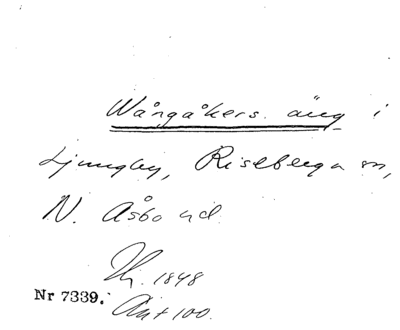 Wångåkers äng i
Ljungby, Riseberga sn,
N. Åsbo hd.
Th. 1848
Nr 7339.
Ant 100.